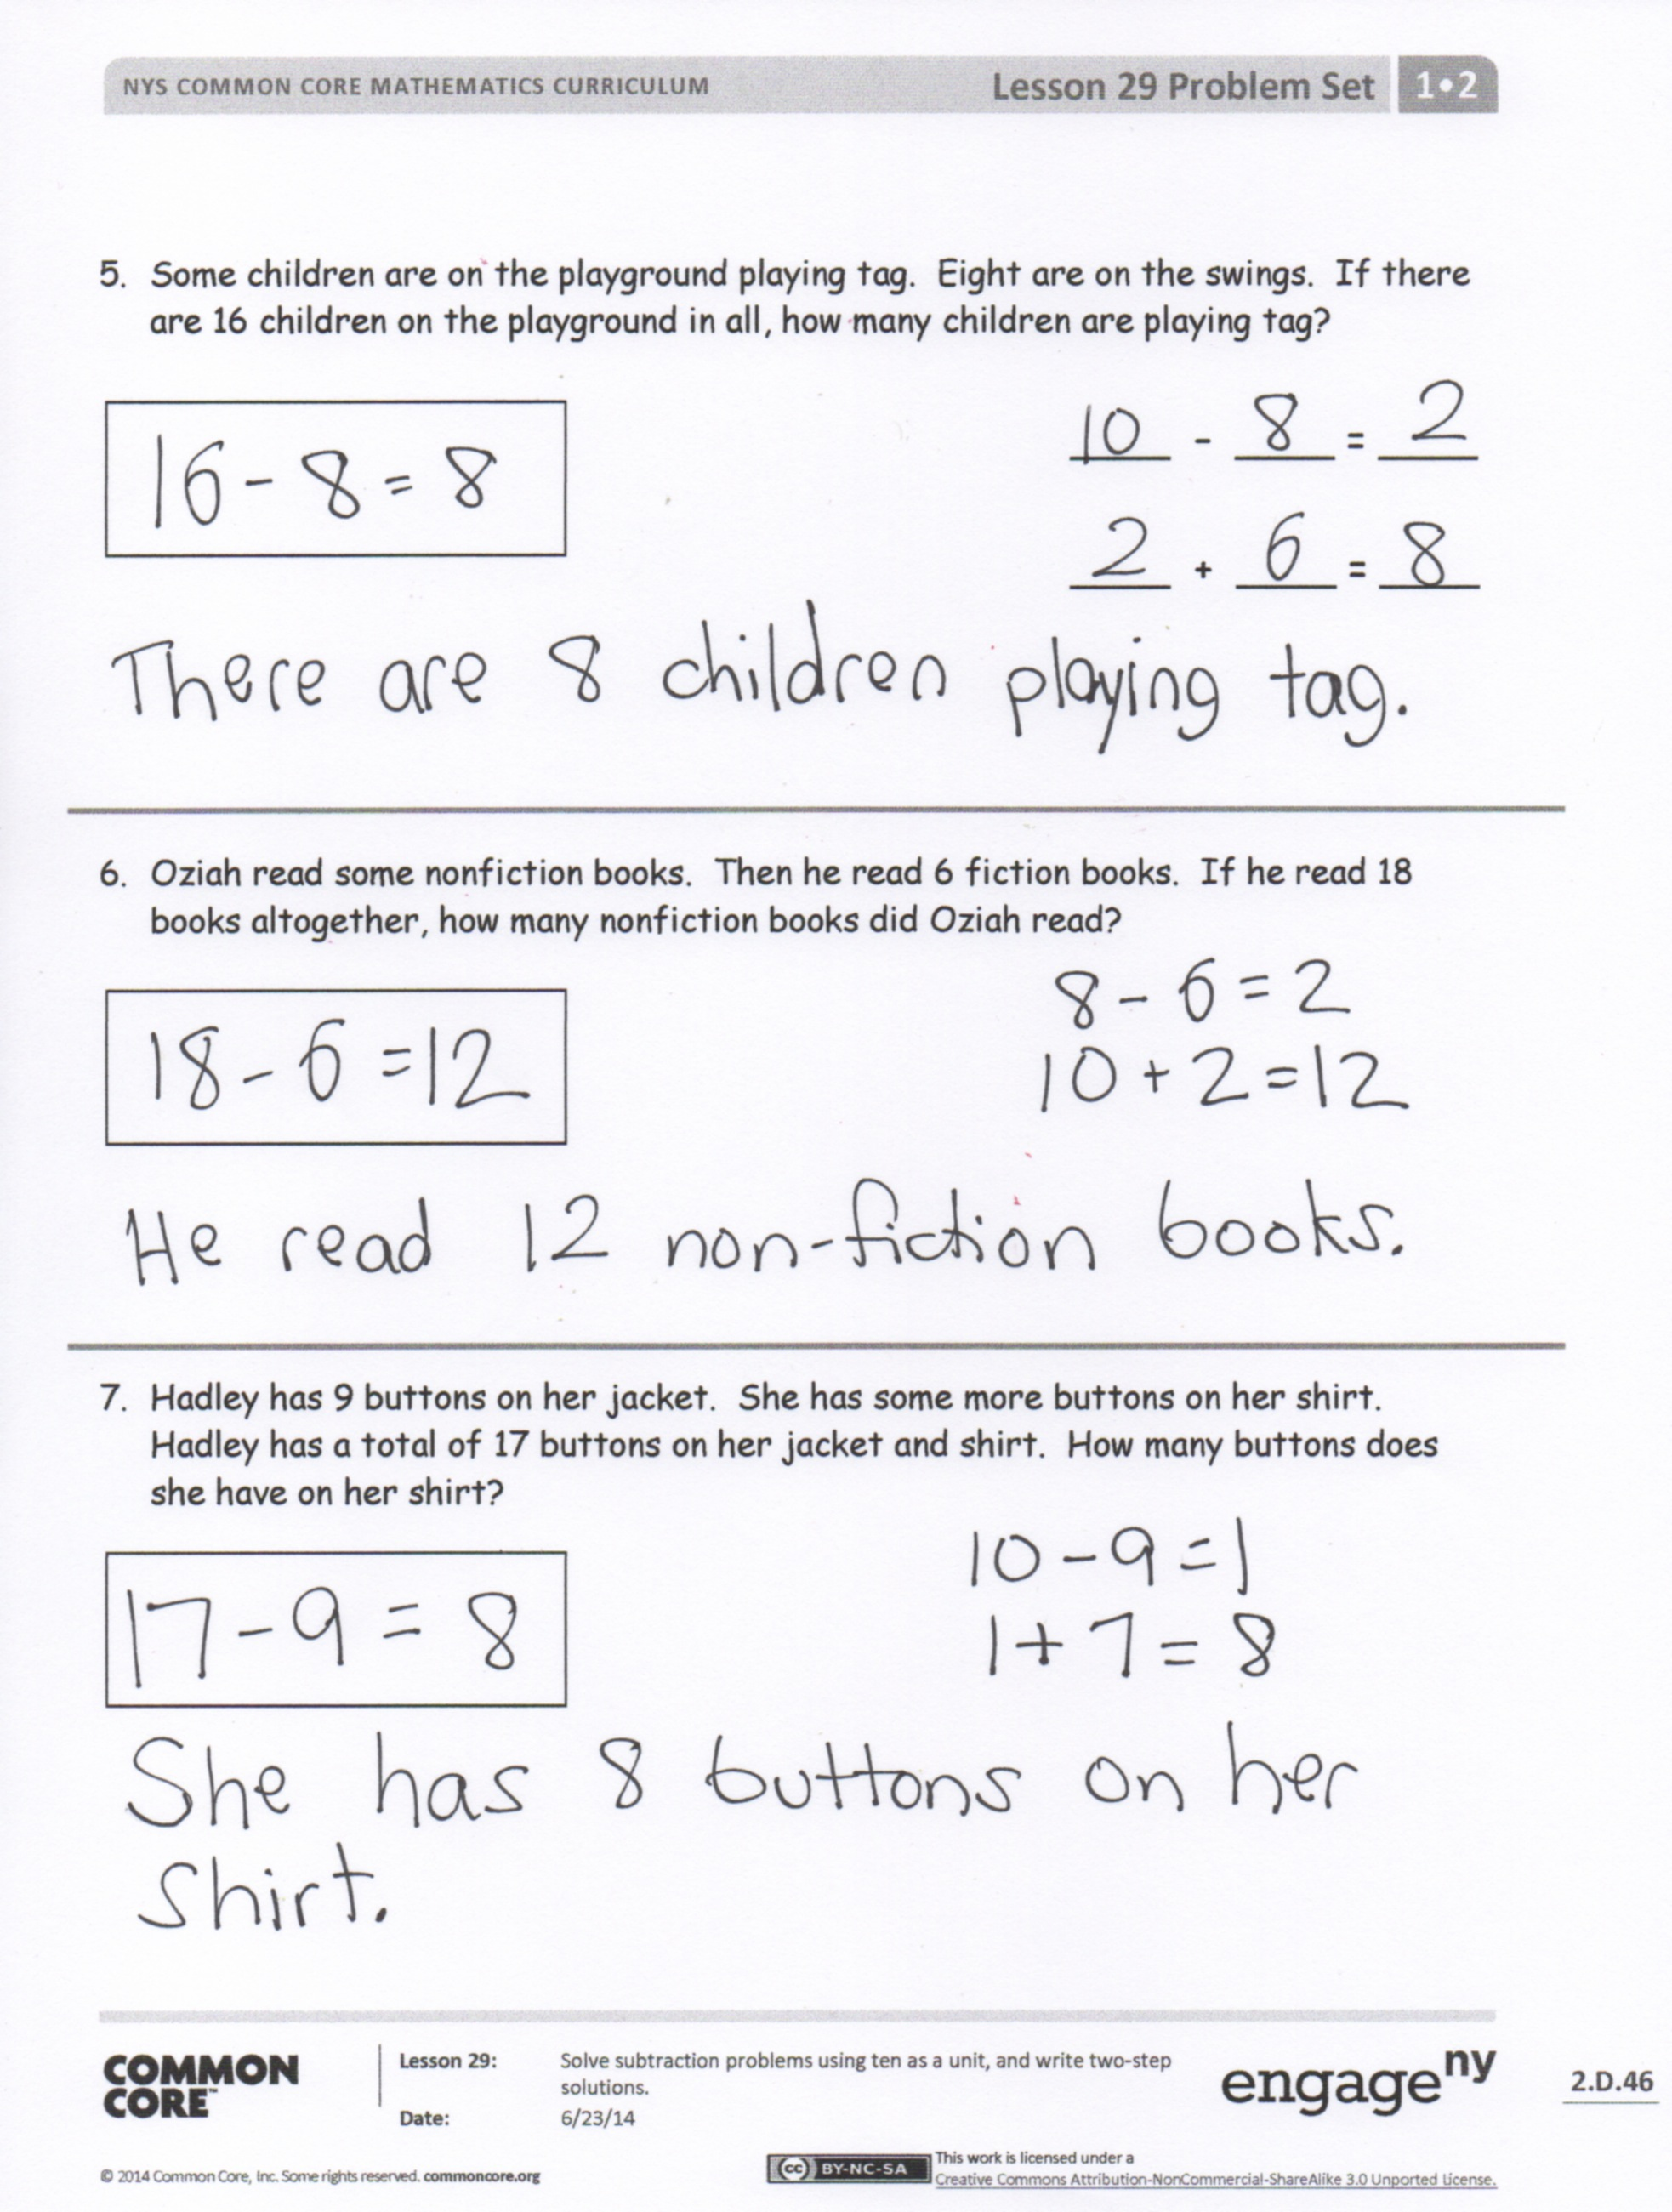 NYS COMMON CORE MATHEMATICS CURRICULUM Lesson 29 Problem Set 1•2
5. Some children are on the playground playing tag. Eight are on the swings. If there
are 16 children on the playground in all, how many children are playing tag?
10 - 8 = 2
16 - 8 = 8
2 + 6 = 8
There are 8 children playing tag.
6. Oziah read some nonfiction books. Then he read 6 fiction books. If he read 18
books altogether, how many nonfiction books did Oziah read?
8 - 6 = 2
18 - 6 = 12
10 + 2 = 12
He read 12 non-fiction books.
7. Hadley has 9 buttons on her jacket. She has some more buttons on her shirt.
Hadley has a total of 17 buttons on her jacket and shirt. How many buttons does
she have on her shirt?
10 - 9 = 1
17 - 9 = 8
1 + 7 = 8
She has 8 buttons on her
shirt.
COMMON
CORE™
Lesson 29: Solve subtraction problems using ten as a unit, and write two-step
solutions.
Date: 6/23/14
engage ny
2.D.46
© 2014 Common Core, Inc. Some rights reserved. commoncore.org
cc BY-NC-SA
This work is licensed under a
Creative Commons Attribution-NonCommercial-ShareAlike 3.0 Unported License.